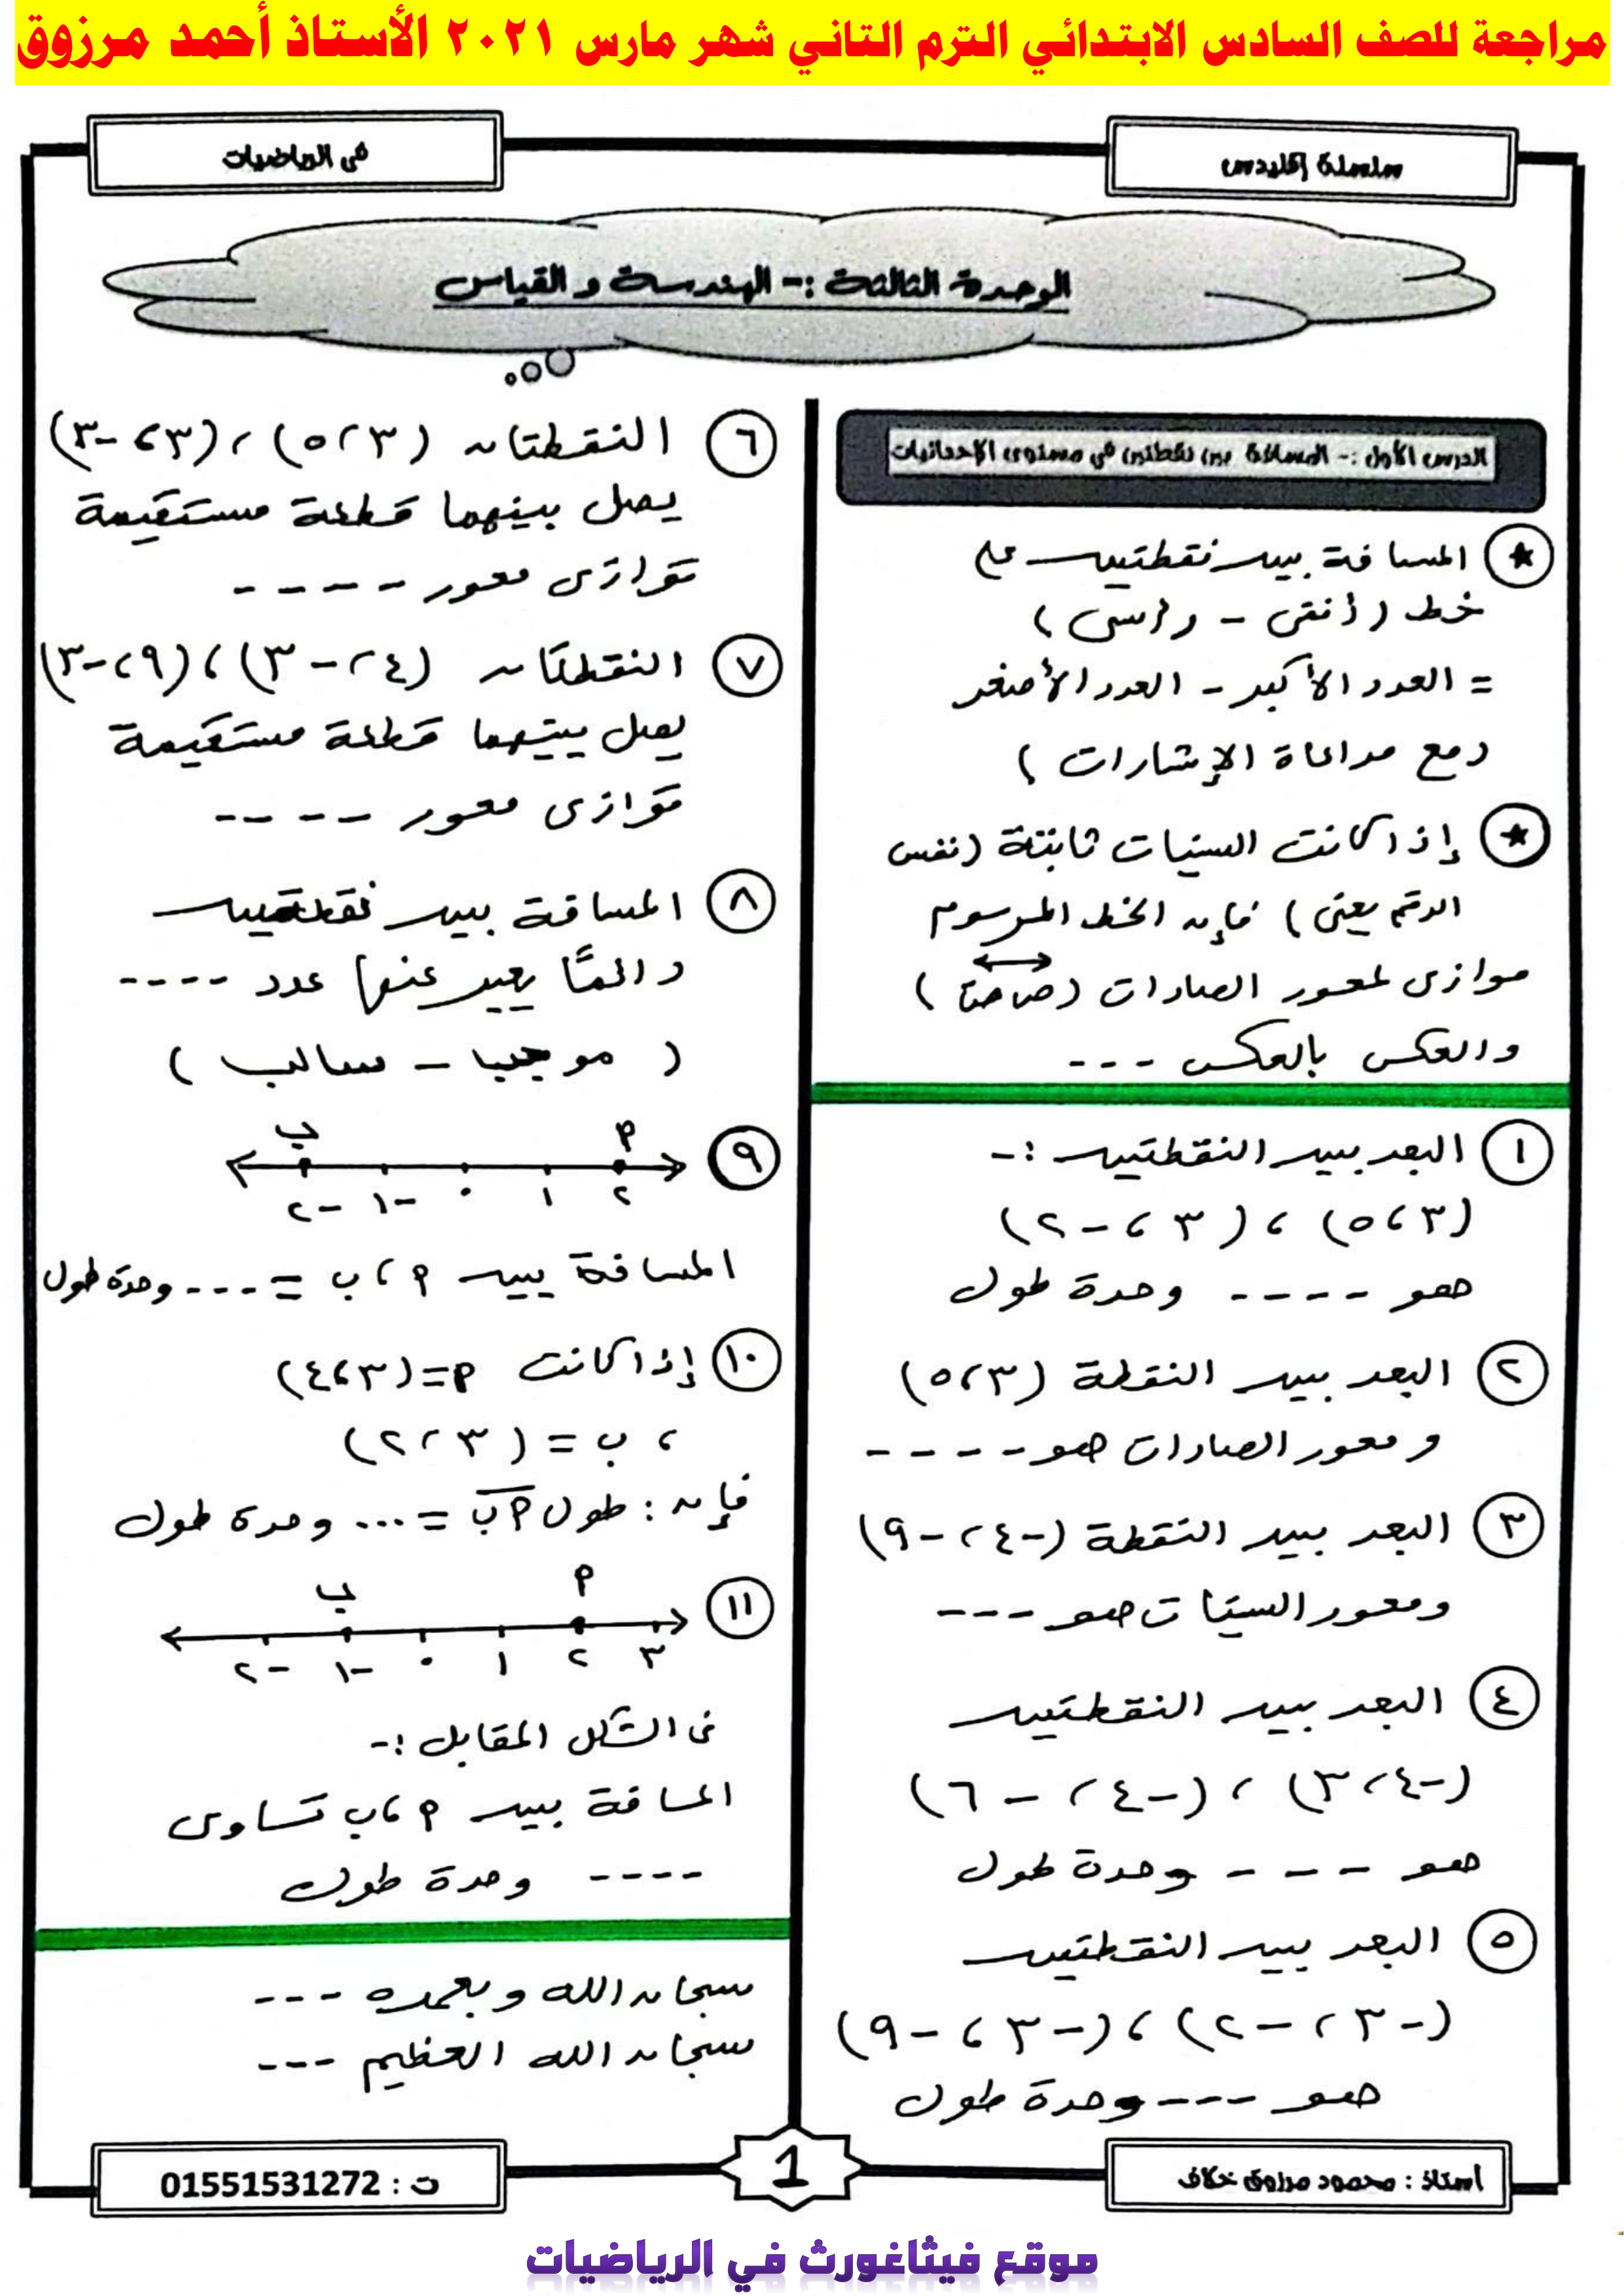 مراجعة للصف السادس الابتدائي الترم التاني شهر مارس ٢٠٢١ الأستاذ أحمد مرزوق
سلسلة إقليدس
فى الرياضيات
الوحدة الثالثة :- الهندسة و القياس
الدرس الأول :- المسافة بين نقطتين في مستوى الإحداثيات
★ المسافة بين نقطتين على
خط (أفقى - رأسى)
= العدد الأكبر - العدد الأصغر
(مع مراعاة الإشارات)
★ إذا كانت السينات ثابتة (نفس
الرقم يعنى) فإن الخط المرسوم
موازى لمحور الصادات (ص ص)
والعكس بالعكس ---
١ البعد بين النقطتين :-
(٣، ٥) ، (٣، -٢)
هو ---- وحدة طول
٢ البعد بين النقطة (٣، ٥)
و محور الصادات هو ----
٣ البعد بين النقطة (-٤، -٩)
ومحور السينات هو ---
٤ البعد بين النقطتين
(-٤، ٣) ، (-٤، -٦)
هو ---- وحدة طول
٥ البعد بين النقطتين
(-٣، -٢) ، (-٣، -٩)
هو --- وحدة طول
٦ النقطتان (٣، ٥) ، (٣، -٣)
يصل بينهما قطعة مستقيمة
توازى محور ----
٧ النقطتان (٤، -٣) ، (٩، -٣)
يصل بينهما قطعة مستقيمة
توازى محور ----
٨ المسافة بين نقطتين
دائمًا يعبر عنها عدد ----
(موجب - سالب)
٩ ب أ
-٢ -١ ٠ ١ ٢
المسافة بين أ ، ب = --- وحدة طول
١٠ إذا كانت أ = (٣، ٤)
، ب = (٣، ٢)
فإن : طول أ ب = ... وحدة طول
١١ ب أ
-٢ -١ ٠ ١ ٢ ٣
فى الشكل المقابل :-
المسافة بين أ ، ب تساوى
---- وحدة طول
سبحان الله وبحمده ---
سبحان الله العظيم ---
أستاذ : محمود مرزوق خلاف
1
ت : 01551531272
موقع فيثاغورث في الرياضيات